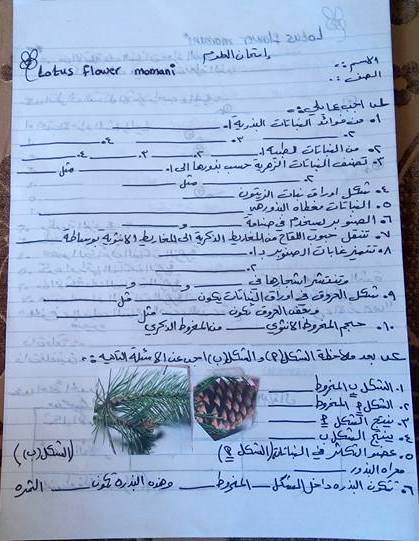 Lotus flower momani
امتحان العلوم
Lotus flower momani
الاسم :.
الصف :.
س١ اجب عما يلي :-
١. من فوائد النباتات البذرية ١.
٢. ٣. ٤.
٢. من النباتات الطبية ١. ٢. ٣. ٤.
٣. تصنف النباتات الزهرية حسب بذورها الى ١. مثل
٢. مثل
٤. شكل اوراق نبات الزيتون
٥. النباتات مغطاه البذور هي
٦. الصنوبر يستخدم في صناعة و
٧. تنتقل حبوب اللقاح من المخاريط الذكرية الى المخاريط الانثوية بوساطة
٨. تتميز غابات الصنوبر بـ ١.
٢.
وتنتشر اشجارها في و و
٩. شكل العروق في اوراق النباتات يكون مثل
وبعض العروق تكون مثل
١٠. حجم المخروط الانثوي من المخروط الذكري
س٢ بعد ملاحظة الشكل (أ) و الشكل (ب) اجب عن الاسئلة التالية :-
١. الشكل ب المخروط
٢. الشكل أ المخروط
٣. ينتج الشكل أ
٤. ينتج الشكل ب
٥. عضو التكاثر في النباتات
معراه البذور
(الشكل أ)
(الشكل (ب))
٦. تتكون البذره داخل الشكل المخروط وهذه البذره تكون الثمره